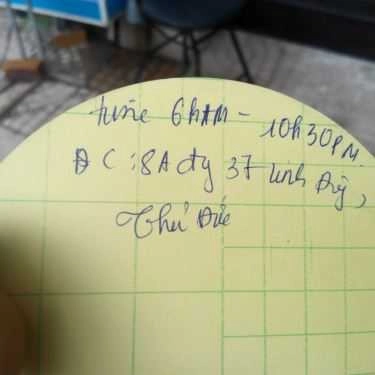 time 6hAM - 10h30PM
ĐC: 8A đg 37 linh Đg,
Thủ Đức